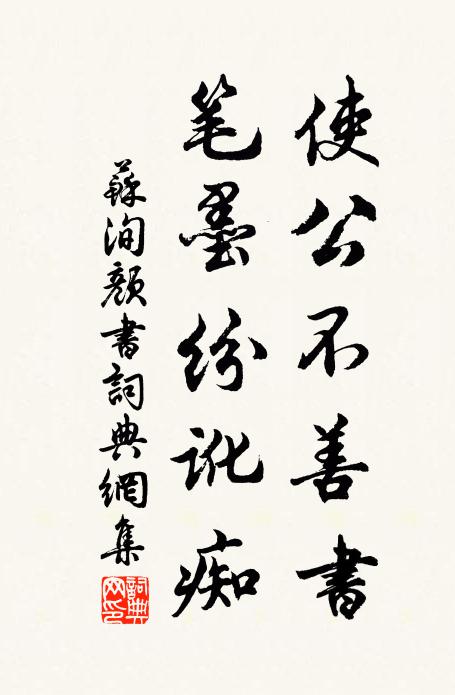 使公不善書
笔墨紛訛痴
蘇洵顏書詞典網集
詞典网印